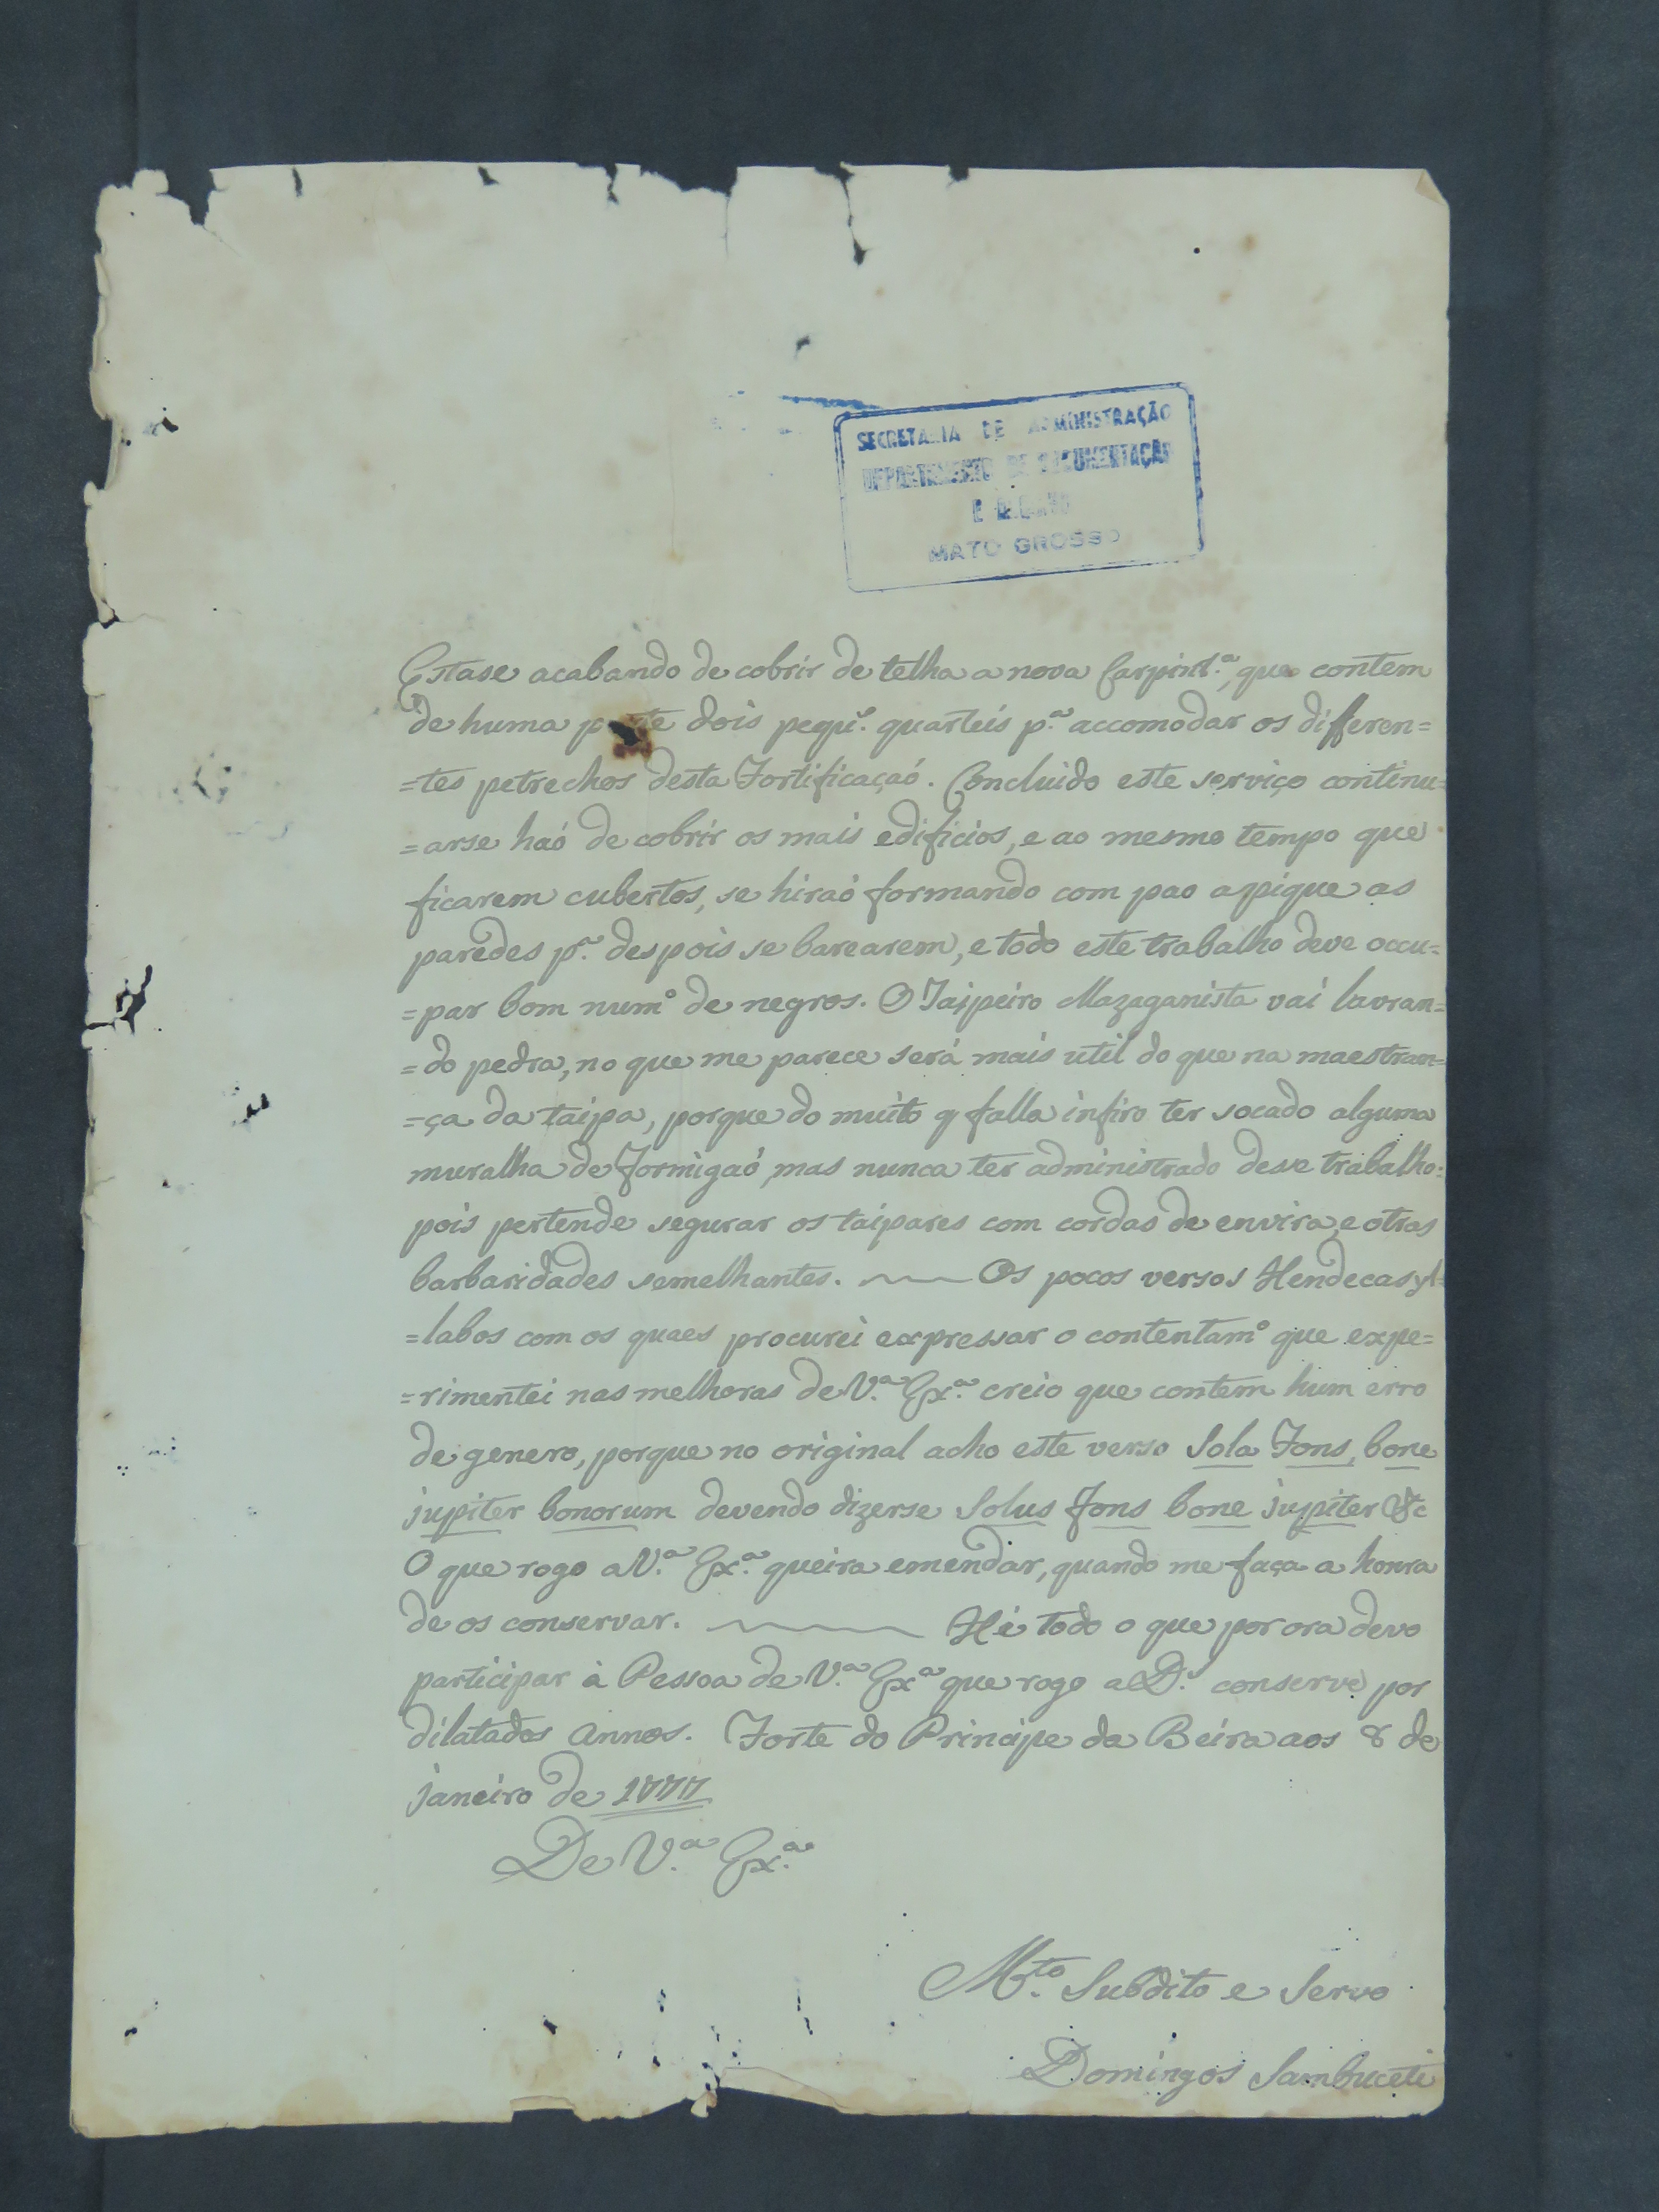 SECRETARIA DE ADMINISTRAÇÃO
DEPARTAMENTO DE DOCUMENTAÇÃO
E
MATO GROSSO
Estase acabando de cobrir de telha a nova Carpint.ª, que contem
de huma parte dois pequ.ˢ quarteis p.ª accomodar os differen=
=tes petrechos desta Fortificaçaó. Concluido este serviço continu=
=arse haó de cobrir os mais edificios, e ao mesmo tempo que
ficarem cubertos, se hiraó formando com pao apique as
paredes p.ª despois se barearem, e todo este trabalho deve occu=
=par bom num.º de negros. O Taipeiro Mazaganista vai lavran=
=do pedra, no que me parece será mais util do que na maestran=
=ça da taipa, porque do muito q falla infiro ter socado alguma
muralha de Formigaó, mas nunca ter administrado dese trabalho=
pois pertende segurar os taipares com cordas de envira, e otras
barbaridades semelhantes. Os pocos versos Hendecasyl=
=labos com os quaes procurei expressar o contentam.º que expe=
=rimentei nas melhoras de V.ª Ex.ª creio que contem hum erro
de genero, porque no original acho este verso Sola Fons, bone
jupiter bonorum devendo dizerse Solus Fons bone jupiter &c
O que rogo a V.ª Ex.ª queira emendar, quando me faça a honra
de os conservar. Hé todo o que por ora devo
participar à Pessoa de V.ª Ex.ª que rogo a D.ˢ conserve por
dilatados Annos. Forte do Principe da Beira aos 8 de
janeiro de 1777
De V.ª Ex.ª
M.ᵗᵒ Subdito e Servo
Domingos Sambuceti